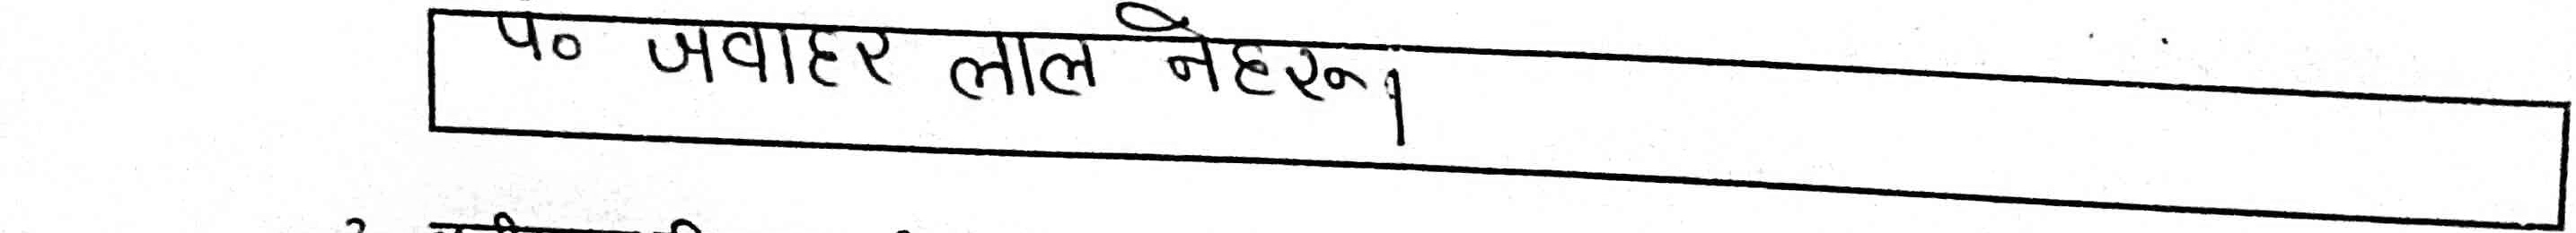 प० जवाहर लाल नेहरू।